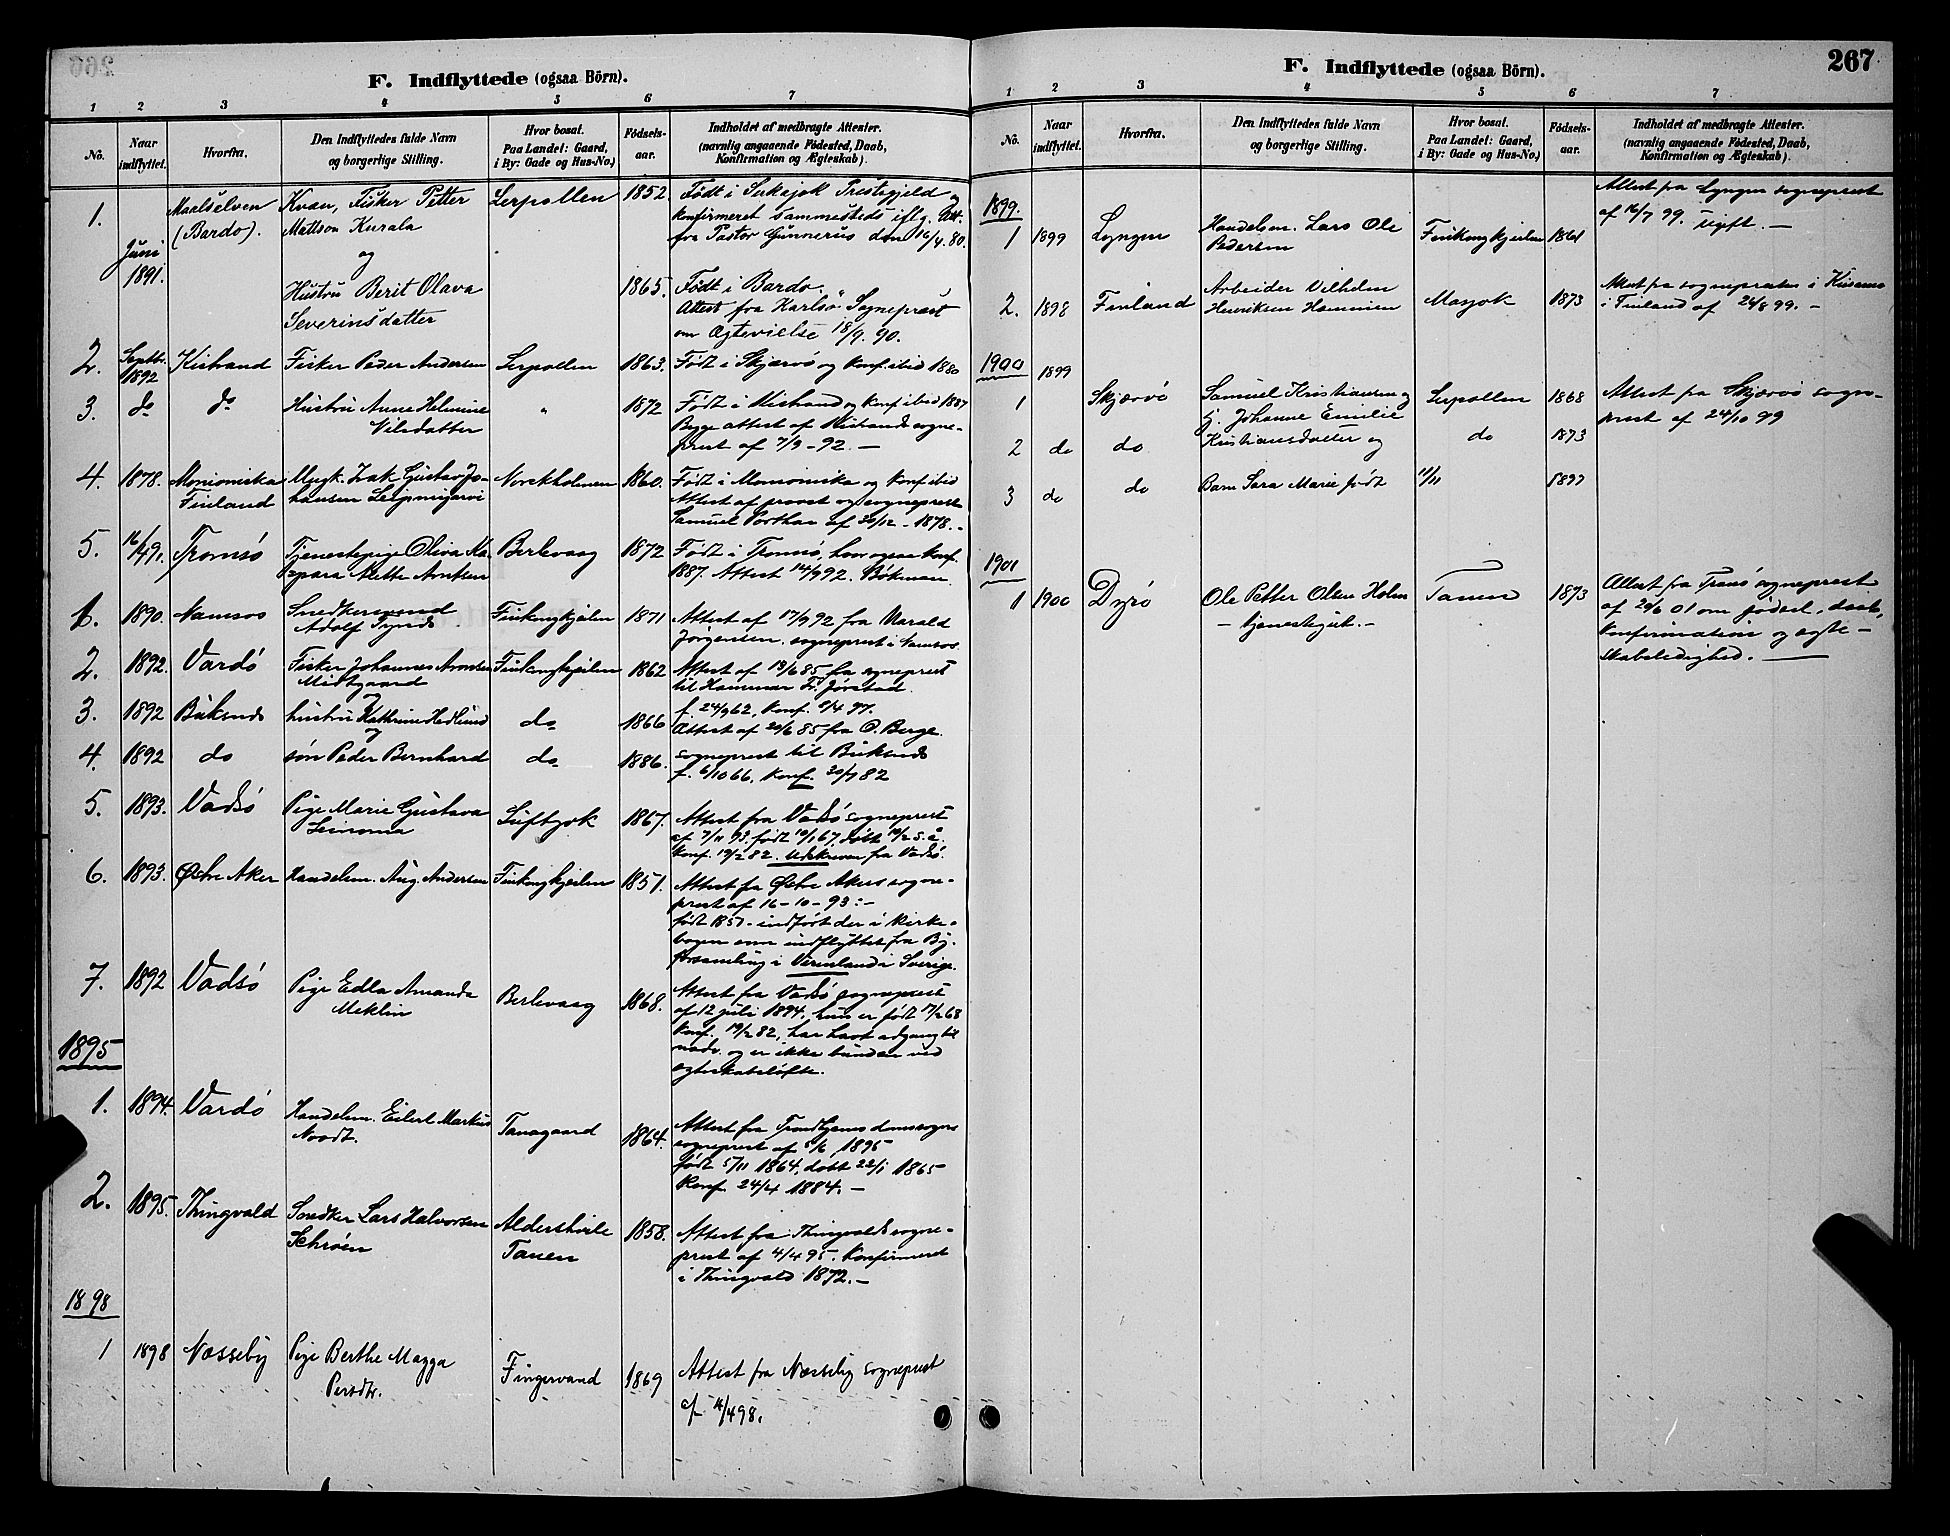 F. Indflyttede (ogsaa Börn).
1 2 3 4 5 6 7
No. Naar indflyttet. Hvorfra. Den Indflyttedes fulde Navn og borgerlige Stilling. Hvor bosat. Paa Landet: Gaard, i By: Gade og Hus-No.) Fødsels-aar. Indholdet af medbragte Attester. (navnlig angaaende Fødested, Daab, Konfirmation og Ægteskab).
1. Juni 1891. Maalselven (Bardo). Kvæn, Fisker Petter Lerpollen 1852 Født i Prestegjeld og
Mattson Kurala konfirmeret sammesteds iflg. Att.
og fra Pastor Gunnerus dem 16/4. 80.
Hustru Berit Olava 1865. Født i Bardo.
Severinsdatter Attest fra Karlsö Sogneprest
om Ægtevielse 18/9. 90.
2. Septbr. 1892 Kistrand Fisker Peder Andersen Lerpollen 1863. Født i Skjærvö og konf. ibid 1880
3. do do Hustru Anne Helmine " 1872 Født i Kistrand og konf ibid 1887
Nilsdatter Begge attest af Kistrands sogne-
prest af 7/9-92. —
4. 1878. Finland Ungk. Isak Gustav Jo- 1860. Født i og konf ibid
hansen Attest af provst og sogneprest
Samuel Porthan af 30/12 - 1878. -
5. 16/4 91. Tromsö Tjenestepige Oliva Berlevaag 1872 Født i Tromsö, hvor ogsaa konf.
Anette Arntsen 1887. Attest 14/9 92. Bökman.
1. 1890. Namsos Snedkersvend Finkongkjeilen 1871 Attest af 17/9 92 fra Harald
Adolf Jørgensen, sogneprest i Namsos
2. 1892. Vardö Fisker Johannes Arntsen Finkongkjeilen 1862 Attest af 19/6 85 fra sogneprest
Midtgaard til Hammar Fr. Jörstad.
og f. 24/9 62, konf. 8/4 77.
3. 1892 Buksnes hustru Kathrine Hedlund do 1866 Attest af 20/6 85 fra O. Berge.
og sogneprest til Buksnes
4. 1892 do søn Peder Bernhard do 1886. f. 6/10 66, konf. 30/7 82
5. 1893. Vadsö Pige Marie Gustava Luftjok 1867. Attest fra Vadsö sogneprest
af 7/11 93. født 10/1 67, döbt 10/2 s. å.
konf. 19/2 82. Udskreven fra Vadsö.
6. 1893. Østre Aker Handelsm. Aug. Andersen Finkongkjeilen 1857. Attest fra Østre Akers sogne-
prest af 16-10-93:-
født 1857 - indført der i kirke-
bogen som indflyttet fra By.
forsamling i Vermland i Sverige.
7. 1892 Vadsö Pige Edla Amanda Berlevaag 1868. Attest fra Vadsö sogneprest
Meklin af 12 juli 1894, hun er født 17/2 68
konf. 19/2 82, har havt adgang til
nadv. og er ikke bunden ved
ægteskabslöfte.
1895
1. 1894. Vardö Handelsm. Eilert Markus Tanagaard 1864. Attest fra Trondhjems domsogns
Noodt. sogneprest af 5/6 1895
født 5/11 1864, dobt 22/1 1865
Konf. 24/4 1884. —
2. 1895. Thingvald Snedker Lars Halvorsen Aldershvile 1858. Attest fra Thingvalds sogne-
Schrøen Tanen prest af 4/4 95. Konfirmeret
i Thingvald 1872. —
1898
1 1898 Næsseby Pige Berthe Magga Fingervand 1869 Attest fra Næsseby sogneprest
Persdtr. af 4/4 98.
F. Indflyttede (ogsaa Börn). 267
1 2 3 4 5 6 7
No. Naar indflyttet. Hvorfra. Den Indflyttedes fulde Navn og borgerlige Stilling. Hvor bosat. Paa Landet: Gaard, i By: Gade og Hus-No.) Fødsels-aar. Indholdet af medbragte Attester. (navnlig angaaende Fødested, Daab, Konfirmation og Ægteskab).
1899. Attest fra Lyngen sogneprest
1 1899 Lyngen Handelsm. Lars Ole Finkongkjeilen 1861 af 16/7 99. ugift. —
Pedersen
2. 1898 Finland Arbeider Vilhelm Masjok 1873 Attest fra sognepresten i
Henriksen i Finland af 24/8 99. -
1900
1 1899 Skjærvö Samuel Kristiansen og Lerpollen 1868 Attest fra Skjærvö sogne-
hj. Johanne Emilie prest af 24/10 99
2 do do Kristiansdatter og do 1873
3 do do Barn Sara Marie født 11/11 1897
1901
1 1900 Dyrö Ole Petter Olsen Holm Tanen 1873 Attest fra Tranö sogneprest
- tjenestegut. - af 20/6 01 om fødsel, daab,
konfirmation og ægte-
skabsledighed. —